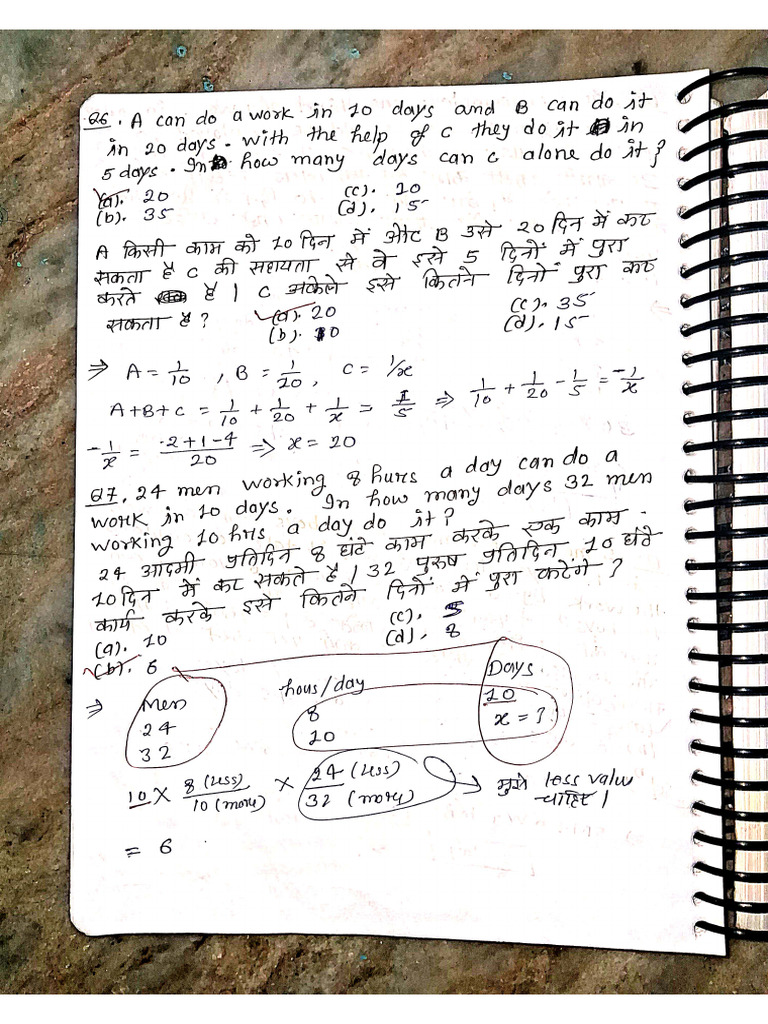 Q6. A can do a work in 10 days and B can do it
in 20 days. with the help of C they do it in
5 days. In how many days can c alone do it?
(a). 20 (c). 10
(b). 35 (d). 15
A किसी काम को 10 दिन में और B उसे 20 दिन में कर
सकता है C की सहायता से वे इसे 5 दिनों में पुरा
करते है । C अकेले इसे कितने दिनों पुरा कर
सकता है ? (a). 20 (c). 35
(b). 10 (d). 15
⇒ A = 1/10 , B = 1/20 , C = 1/x
A+B+C = 1/10 + 1/20 + 1/x = 1/5 ⇒ 1/10 + 1/20 - 1/5 = -1/x
-1/x = 2+1-4/20 ⇒ x = 20
Q7. 24 men working 8 hurs a day can do a
work in 10 days. In how many days 32 men
working 10 hrs a day do it?
24 आदमी प्रतिदिन 8 घंटे काम करके एक काम
10 दिन में कर सकते है । 32 पुरुष प्रतिदिन 10 घंटे
कार्य करके इसे कितने दिनों में पुरा करेंगे ?
(a). 10 (c). 5
(b). 6 (d). 8
⇒ Men hous/day Days
24 8 10
32 10 x = ?
10 × 8 (less)/10 (more) × 24 (less)/32 (more) → मुझे less value
चाहिए ।
= 6